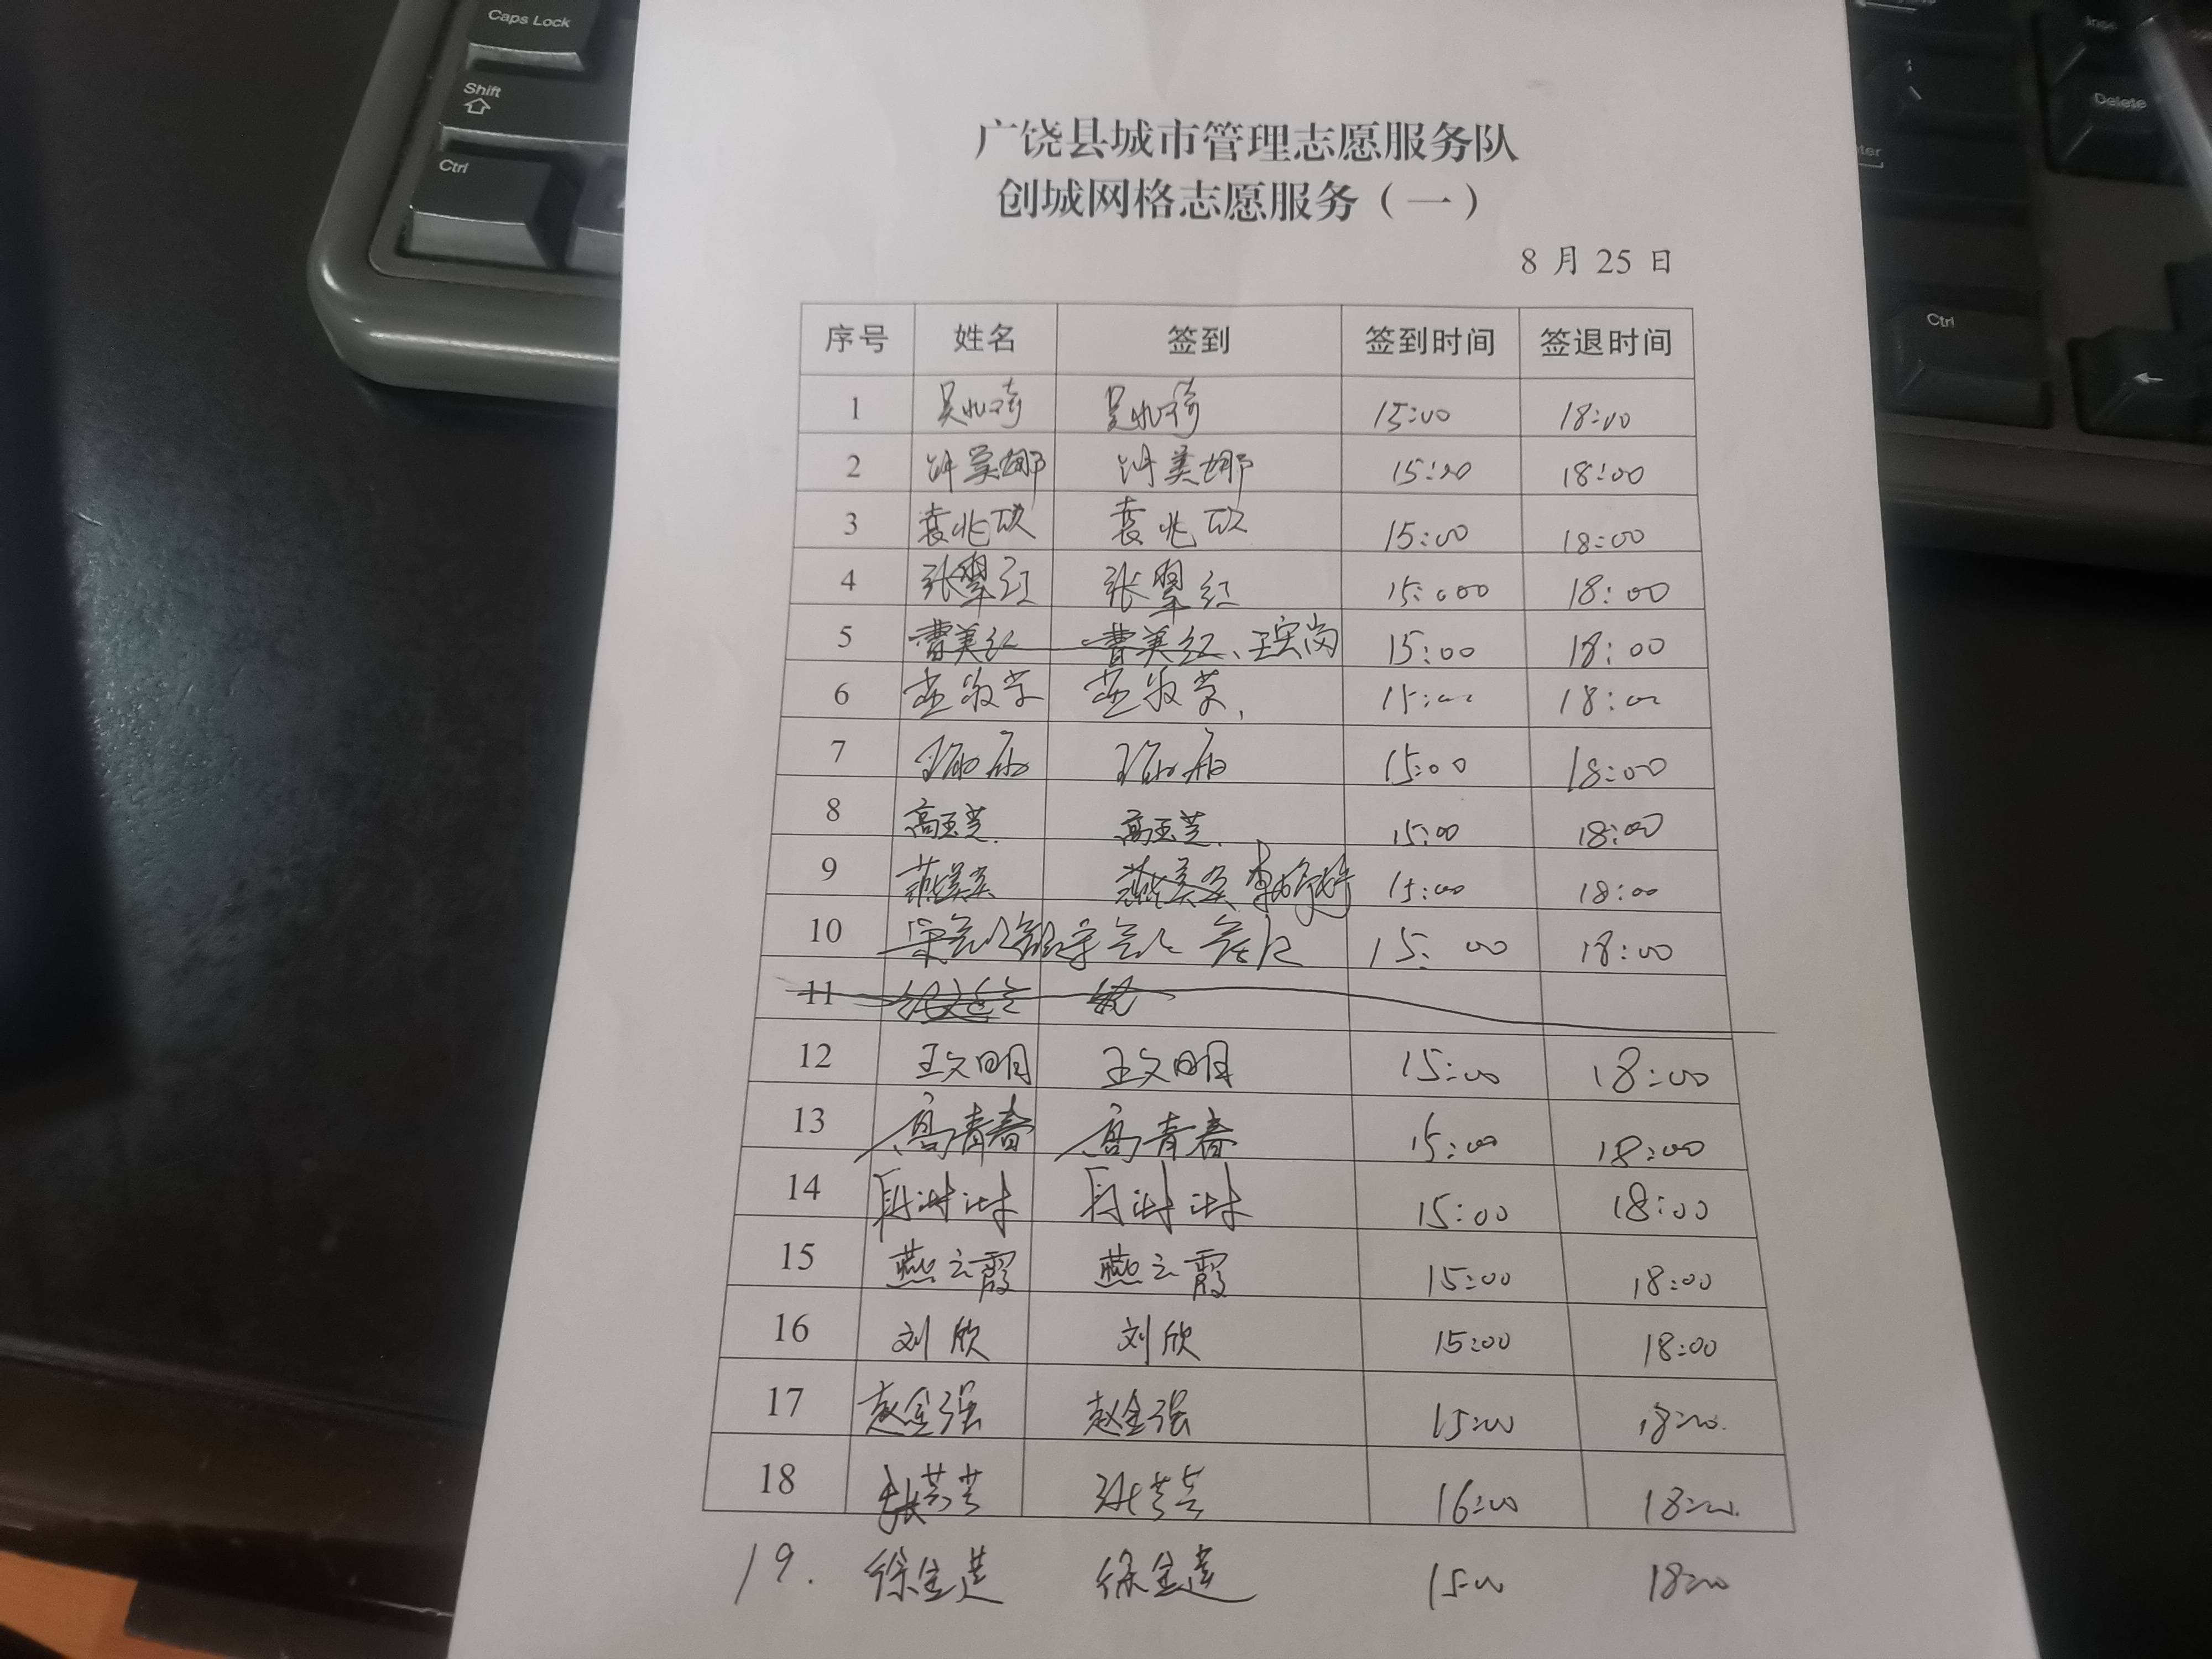 Caps Lock
Shift
Ctrl
Delete
Ctrl
广饶县城市管理志愿服务队
创城网格志愿服务（一）
8 月 25 日
序号 姓名 签到 签到时间 签退时间
1 15:00 18:00
2 许美娜 许美娜 15:00 18:00
3 袁兆欣 袁兆欣 15:00 18:00
4 张翠红 张翠红 15:000 18:00
5 曹美红 曹美红、 15:00 18:00
6 15:00 18:00
7 15:00 18:00
8 高玉芝. 高玉芝. 15:00 18:00
9 燕美英 燕美英 李婷婷 15:00 18:00
10 15:00 18:00
11
12 王文明 王文明 15:00 18:00
13 高青春 高青春 15:00 18:00
14 15:00 18:00
15 燕云霞 燕云霞 15:00 18:00
16 刘欣 刘欣 15:00 18:00
17 赵金强 赵金强 15:00 18:00.
18 张芸芸 张芸芸 16:00 18:00.
19. 徐金莲 徐金莲 15:00 18:00